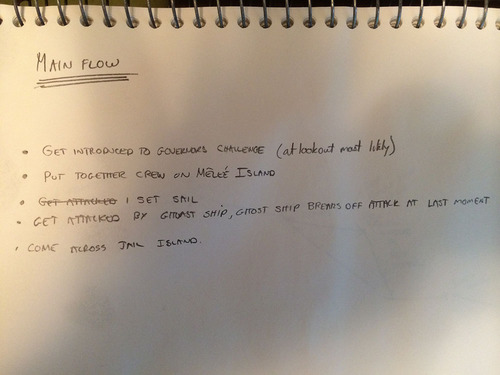 MAIN FLOW
• GET INTRODUCED TO GOVERNORS CHALLENGE (at lookout most likely)
• PUT TOGETHER CREW ON MÊLÉÉ ISLAND
• GET ATTACKED 1 SET SAIL
• GET ATTACKED BY GHOAST SHIP, GHOST SHIP BREAKS OFF ATTACK AT LAST MOMENT
• COME ACROSS JAIL ISLAND.